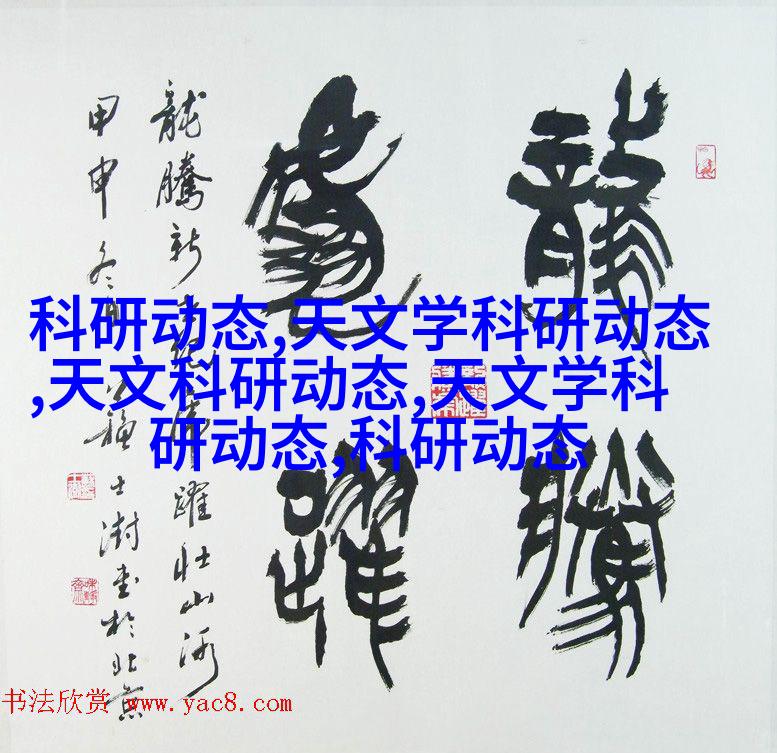 龍騰
虎躍
龍騰新世紀虎躍壯山河
甲申冬月蘇士澍書於北京
科研动态,天文学科研动态
,天文科研动态,天文学科
研动态,科研动态
书法欣赏 www.yac8.com